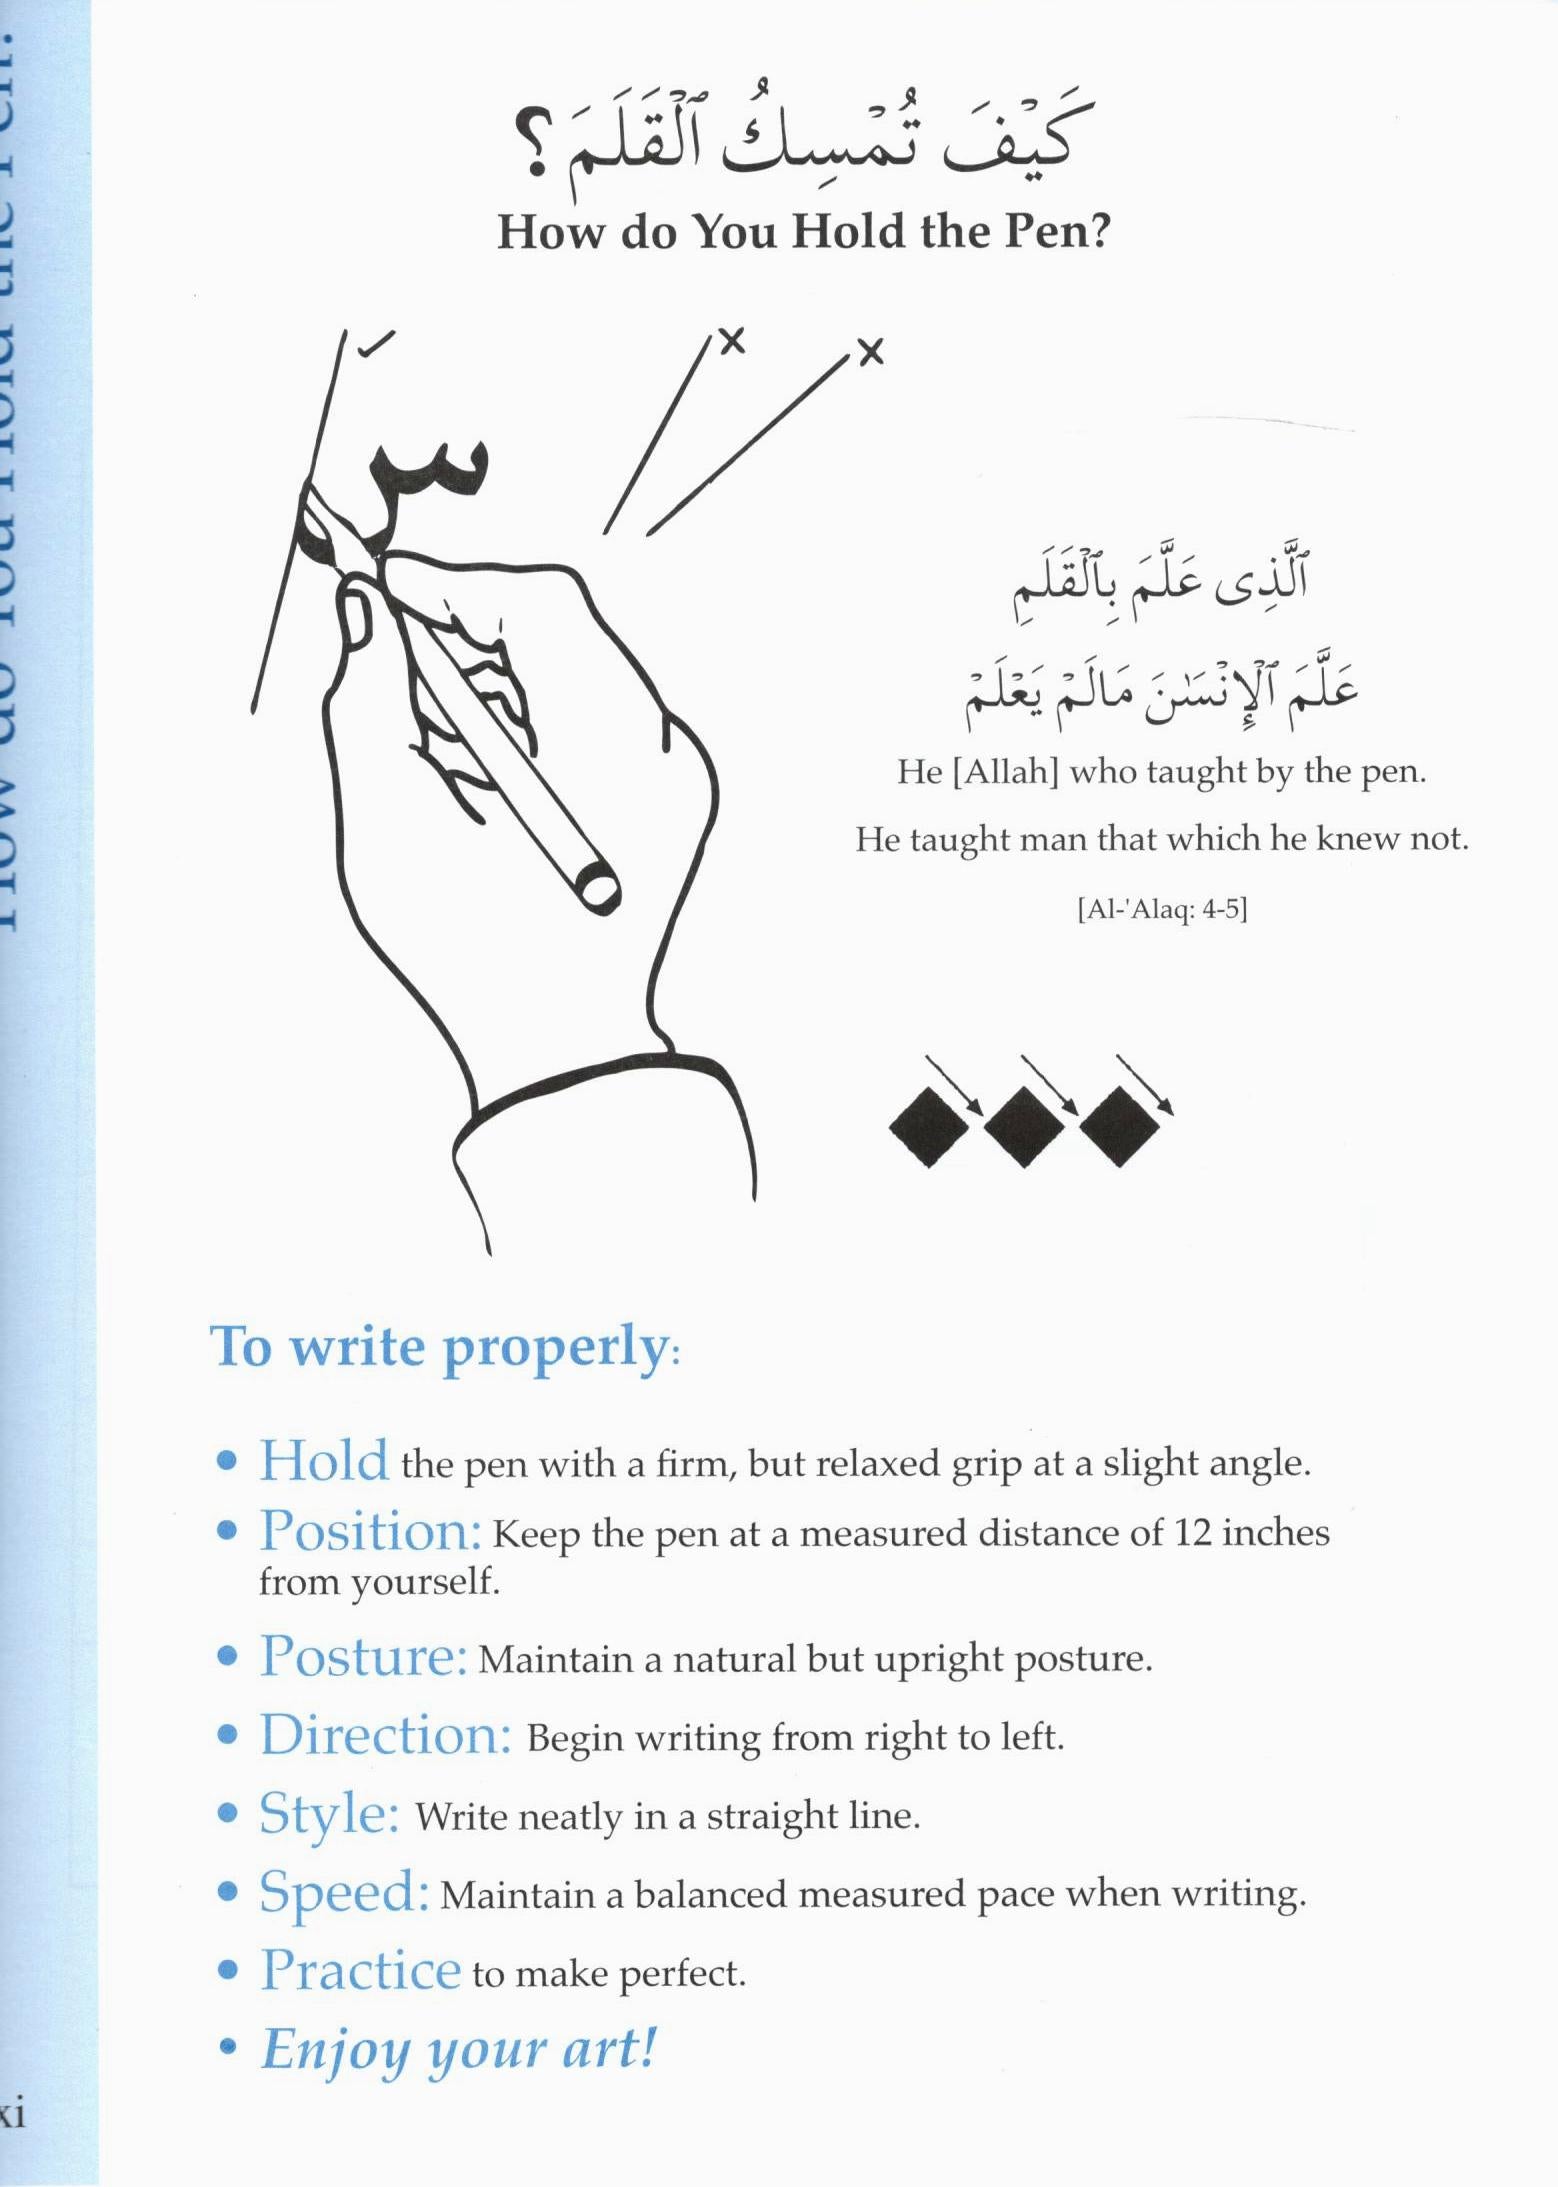 How do You Hold the Pen?
كَيْفَ تُمْسِكُ ٱلْقَلَمَ؟
How do You Hold the Pen?
س
ٱلَّذِى عَلَّمَ بِٱلْقَلَمِ
عَلَّمَ ٱلْإِنْسَٰنَ مَالَمْ يَعْلَمْ
He [Allah] who taught by the pen.
He taught man that which he knew not.
[Al-'Alaq: 4-5]
To write properly:
• Hold the pen with a firm, but relaxed grip at a slight angle.
• Position: Keep the pen at a measured distance of 12 inches
from yourself.
• Posture: Maintain a natural but upright posture.
• Direction: Begin writing from right to left.
• Style: Write neatly in a straight line.
• Speed: Maintain a balanced measured pace when writing.
• Practice to make perfect.
• Enjoy your art!
xi